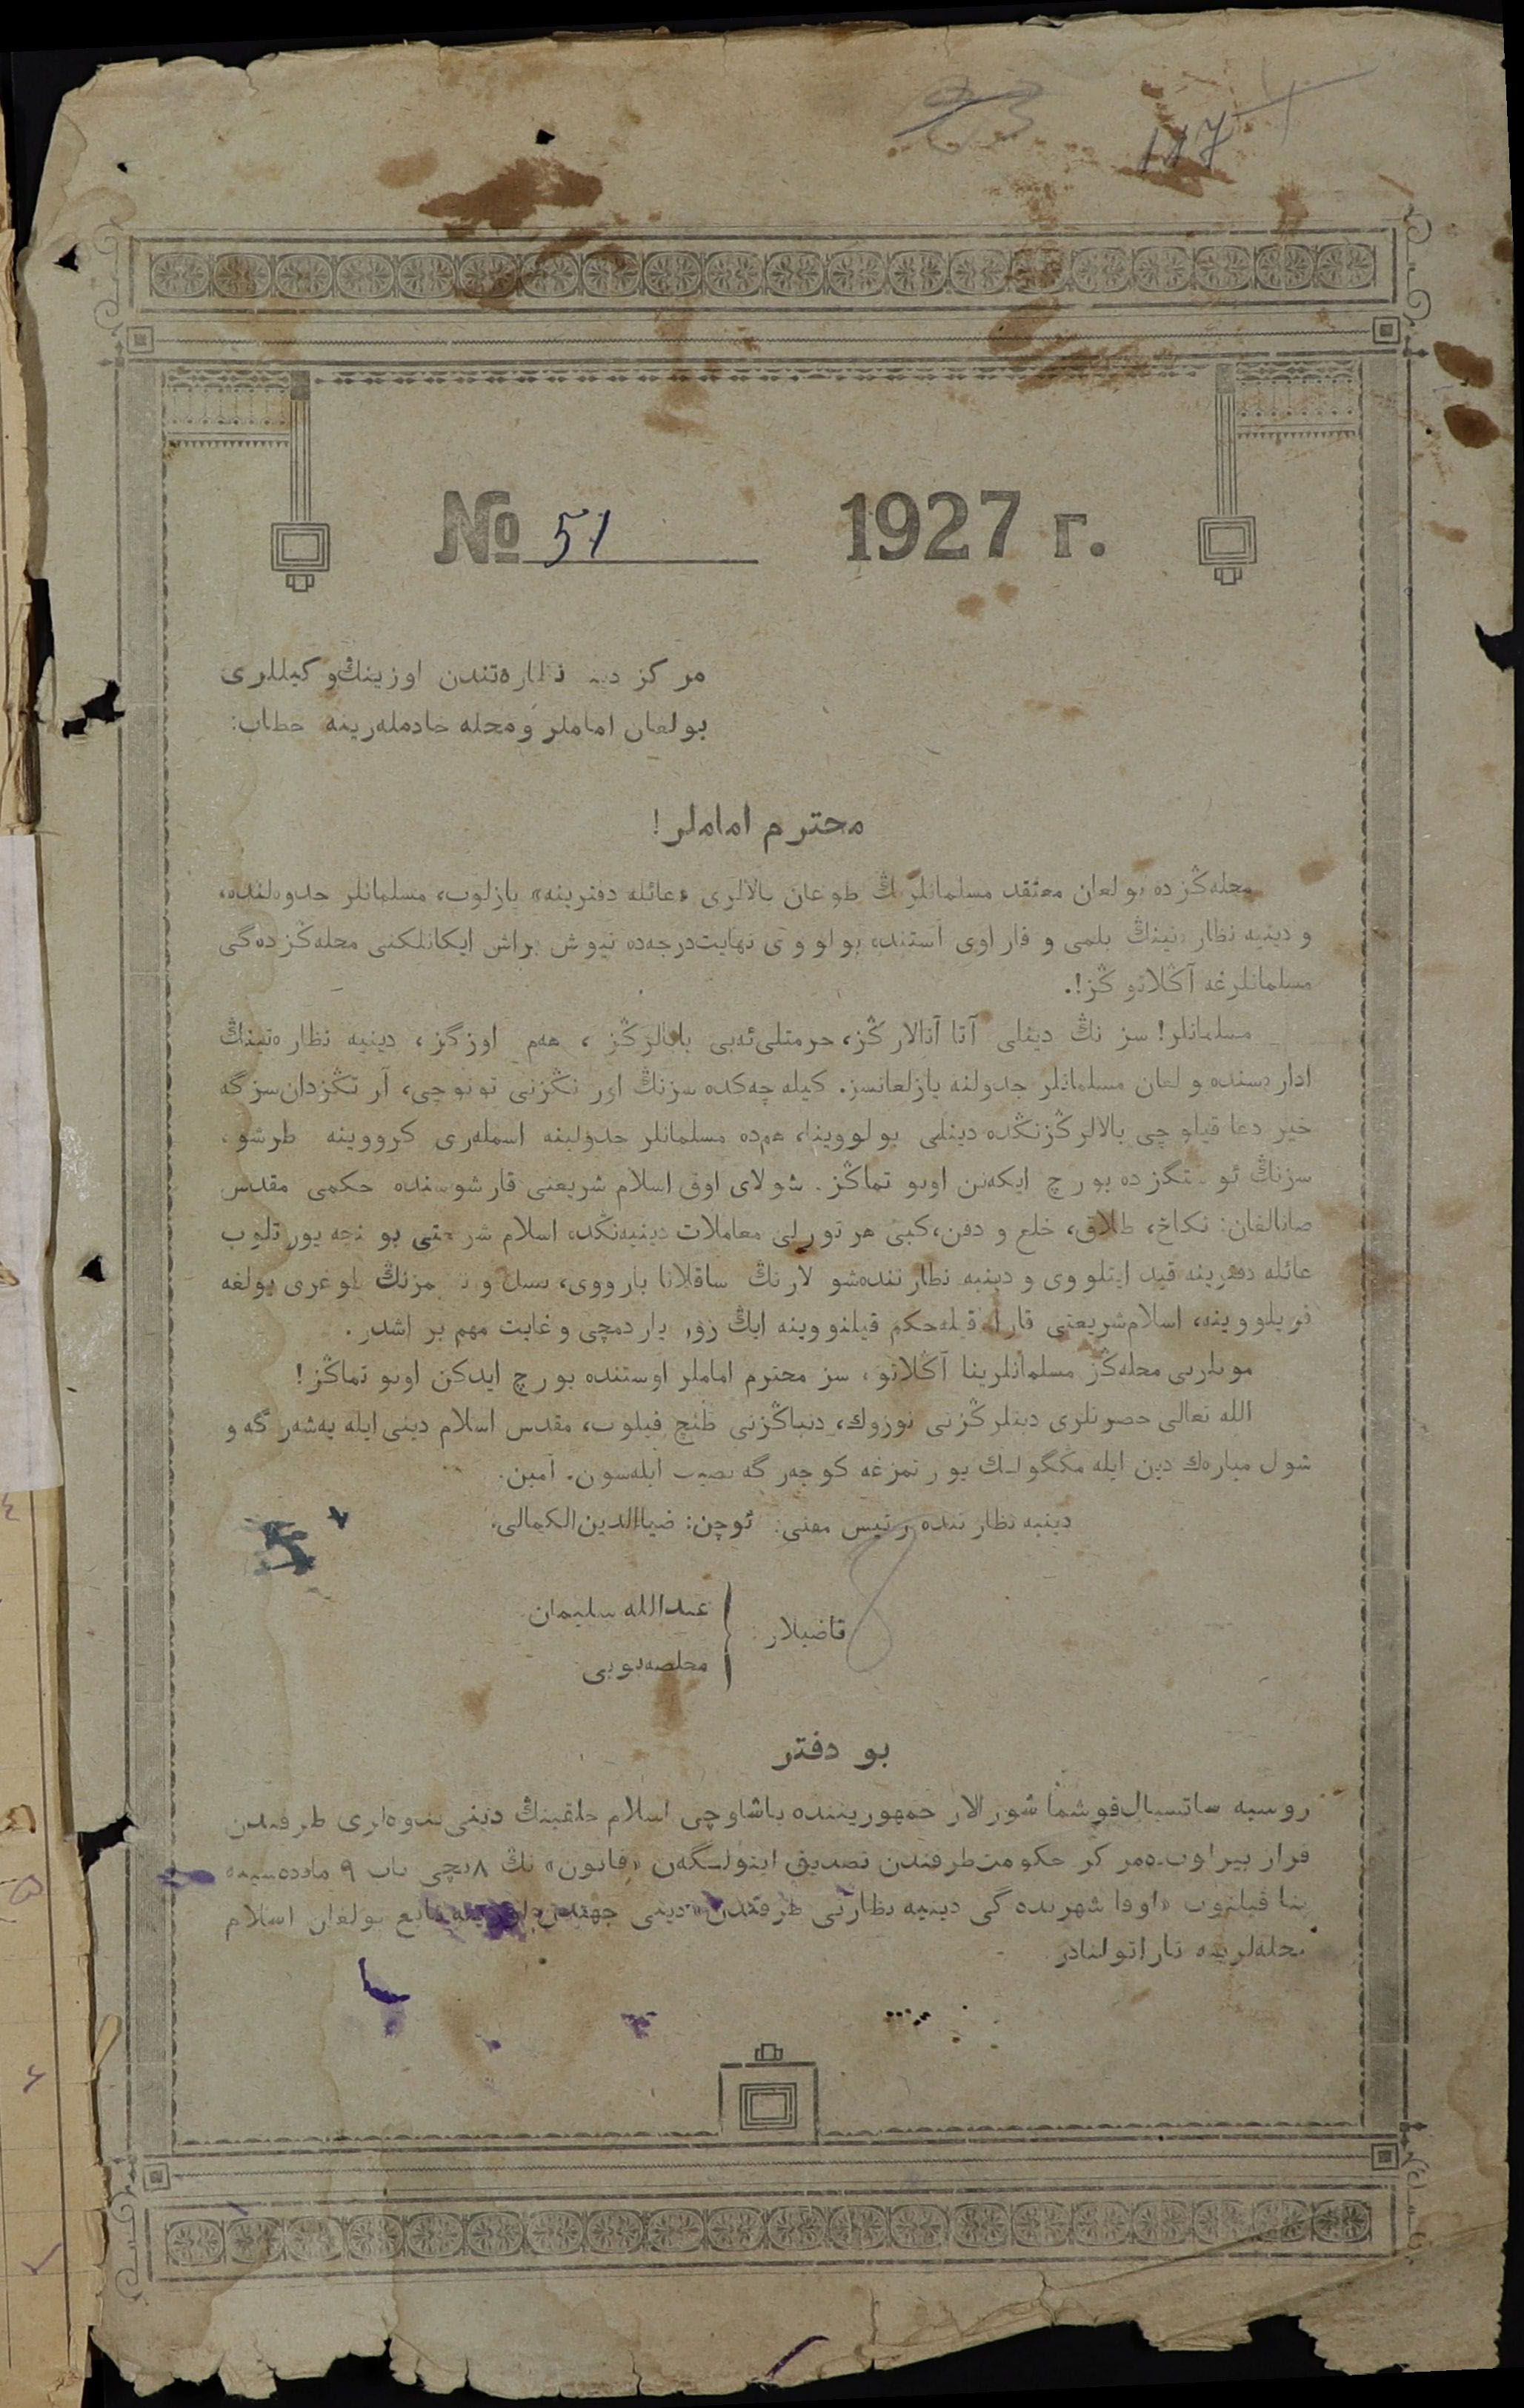 117
№ 51 1927 г.
مركز نظارەتندن اوزينڭ وكيللرى
بولغان اماملر و محله خادملەرينه خطاب:
محترم اماملر!
محلەڭزده بولغان معتقد مسلمانلرنڭ طوغان بالالرى «عائله دفترينه» يازلوب، مسلمانلر جدولنده،
و دينيه نظارتينڭ بلمى و قاراوى آستنده بولووى نهايت درجەده تيوش براش ايكانلكنى محلەڭزدەگى
مسلمانلرغه آڭلاتوڭز!.
مسلمانلر! سزنڭ دينلى آتا آنالارڭز، حرمتلى ئەبى بابالرڭز، هەم اوزگز، دينيه نظارەتينڭ
ادارەسنده بولغان مسلمانلر جدولنه يازلغانسز. كيله چەكده سزنڭ اورنڭزنى توتوچى، آرتڭزدان سزگه
خير دعا قيلوچى بالالرڭزنڭده دينلى بولووينا، هەمده مسلمانلر جدولينه اسملەرى كرووينه طرشو،
سزنڭ ئوستگزده بورچ ايكەنن اونوتماڭز. شولاى اوق اسلام شريعتى قارشوسنده حكمى مقدس
صانالغان: نكاح، طلاق، خلع و دفن، كبى هر تورلى معاملات دينيەنڭده اسلام شريعتى بوينچه يورتلوب
عائله دفترينه قيد ايتلووى و دينيه نظارتنده شولارنڭ ساقلانا بارووى، نسل و نسبمزنڭ طوغرى يولغه
قويلووينه، اسلام شريعتى قاراوينچه حكم قيلنووينه ايڭ زور ياردمچى و غايت مهم بر اشدر.
مونلرنى محلەڭز مسلمانلرينا آڭلاتو، سز محترم اماملر اوستنده بورچ ايدكن اونوتماڭز!
الله تعالى حضرتلرى دينلرڭزنى توزوك، دنياڭزنى طنچ قيلوب، مقدس اسلام دينى ايله يەشەرگه و
شول مبارەك دين ايله مڭگولك يورتمزغه كوچەرگه نصيب ايلەسون. آمين.
دينيه نظارتنده رئيس مفتى: ئوچن: ضياالدين الكمالى.
قاضيلار:
عبدالله سليمان
مخلصه بوبى
بو دفتر
روسيه ساتسيال قوشما شورالار جمهوريتنده ياشاوچى اسلام خلقينڭ دينى ندوەلرى طرفندن
قرار بيرلوب، مركز حكومت طرفندن تصديق ايتولگەن «قانون» نڭ ٨نچى باب ٩ ماددەسينه
بنا قيلنوب «اوفا شهرندەگى دينيه نظارتى طرفندن» دينى جهتدن تابع بولغان اسلام
محلەلرينه تاراتولنادر